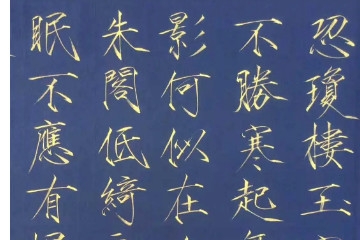 恐瓊樓玉
不勝寒起
影何似在
朱閣低綺
眠不應有